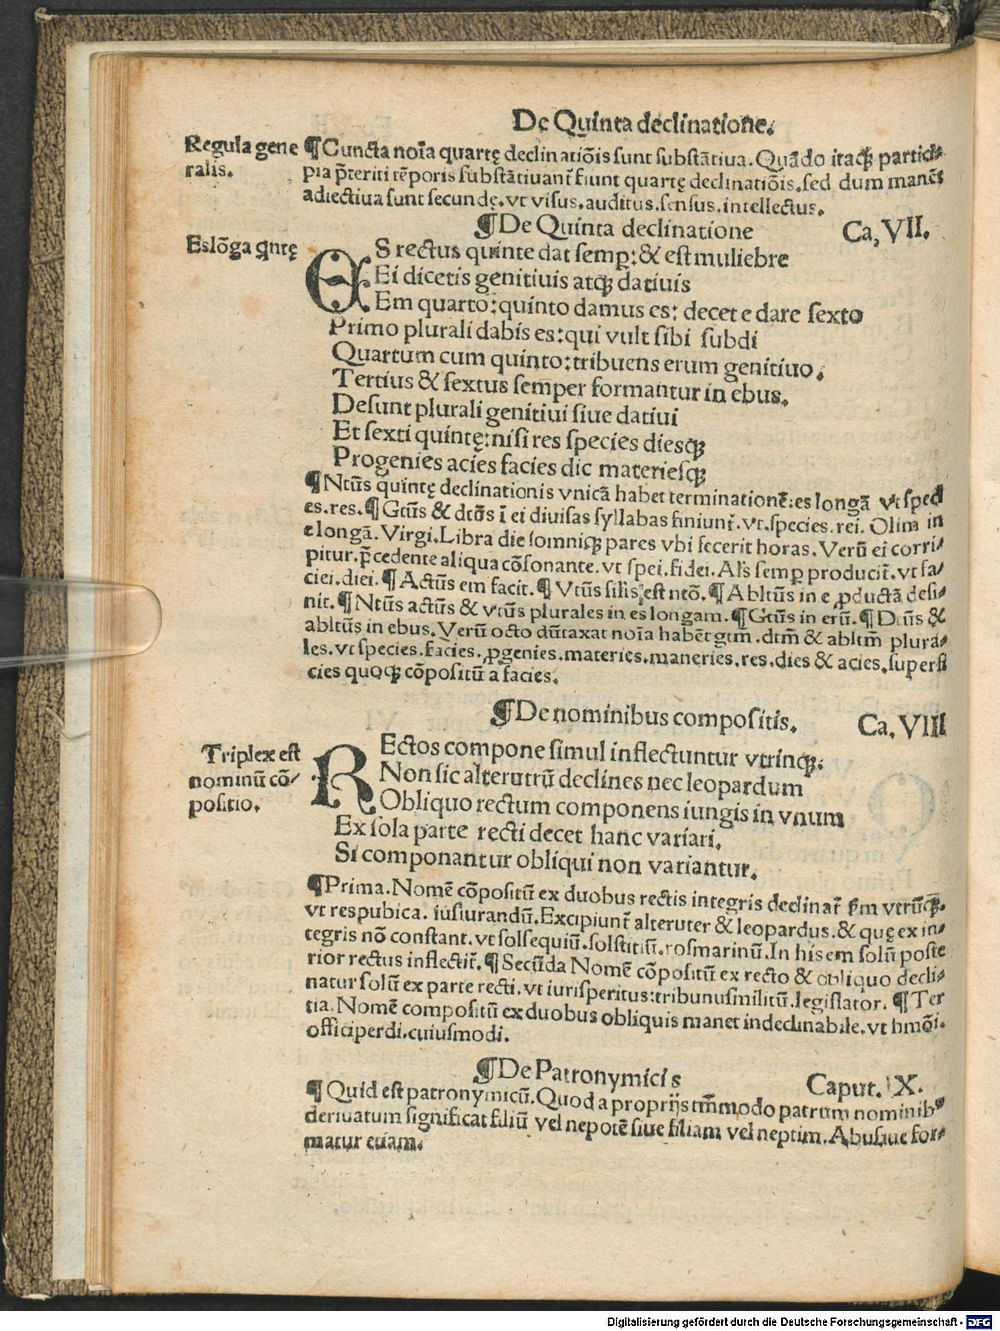 De Quinta declinatione.
Regula gene
ralis.
¶Cuncta noīa quartę declinatiōis sunt substātiua. Quādo itaqꝫ partici⸗
pia p̄teriti tēporis substātiuant̄ fiunt quartę declinatiōis. sed dum manēt
adiectiua sunt secundę. vt visus. auditus. sensus. intellectus.
¶De Quinta declinatione Ca, VII.
Es lōga q̄ntę
ES rectus quinte dat semꝑ: & est muliebre
Ei dicetis genitiuis atqꝫ datiuis
Em quarto: quinto damus es: decet e dare sexto
Primo plurali dabis es: qui vult sibi subdi
Quartum cum quinto: tribuens erum genitiuo.
Tertius & sextus semper formantur in ebus.
Desunt plurali genitiui siue datiui
Et sexti quintę: nisi res species diesqꝫ
Progenies acies facies dic materiesqꝫ
¶Ntūs quintę declinationis vnicā habet terminationē: es longā vt speci
es. res. ¶Gtūs & dtūs ī ei diuisas syllabas finiunt̄. vt. species. rei. Olim in
e longā. Virgi. Libra die somniqꝫ pares vbi fecerit horas. Verū ei corri⸗
pitur. p̄cedente aliqua cōsonante. vt spei. fidei. Al's semꝑ producit̄. vt fa⸗
ciei. diei. ¶Actūs em facit. ¶Vtūs silis est ntō. ¶Abltūs in e ꝓductā desi⸗
nit. ¶Ntūs actūs & vtūs plurales in es longam. ¶Gtūs in erū. ¶Dtūs &
abltūs in ebus. Verū octo dūtaxat noīa habēt gtm̄. dtm̄ & abltm̄ plura⸗
les. vt species. facies. ꝓgenies. materies. maneries. res. dies & acies. superfi
cies quoqꝫ cōpositū a facies.
¶De nominibus compositis. Ca, VIII
Triplex est
nominū cō⸗
positio.
REctos compone simul inflectuntur vtrinqꝫ.
Non sic alterutrū declines nec leopardum
Obliquo rectum componens iungis in vnum
Ex sola parte recti decet hanc variari.
Si componantur obliqui non variantur.
¶Prima. Nomē cōpositū ex duobus rectis integris declinat̄ ẜm vtrūqꝫ.
vt respublica. iusiurandū. Excipiunt̄ alteruter & leopardus. & quę ex in⸗
tegris nō constant. vt solsequiū. solstitiū. rosmarinū. In his em solū poste
rior rectus inflectit̄. ¶Secūda Nomē cōpositū ex recto & obliquo decli⸗
natur solū ex parte recti. vt iurisperitus: tribunusmilitū. legislator. ¶Ter
tia. Nomē compositū ex duobus obliquis manet indeclinabile. vt hmōi.
officiperdi. cuiusmodi.
¶De Patronymicis Caput. IX.
¶Quid est patronymicū. Quod a proprijs tm̄modo patrum nominibꝰ
deriuatum significat filiū vel nepotē siue filiam vel neptim. Abusiue for⸗
matur etiam.
Digitalisierung gefördert durch die Deutsche Forschungsgemeinschaft - DFG